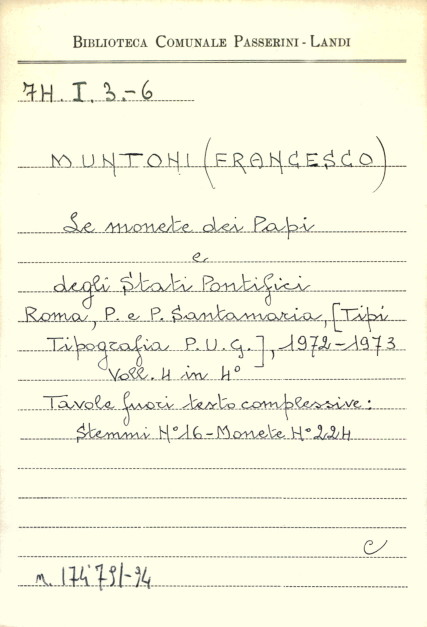 BIBLIOTECA COMUNALE PASSERINI - LANDI
7H. I. 3.-6
MUNTONI (FRANCESCO)
Le monete dei Papi
e
degli Stati Pontifici
Roma, P. e P. Santamaria, [Tipi
Tipografia P.U.G.], 1972-1973
Voll. 4 in 4°
Tavole fuori testo complessive:
Stemmi N°16 - Monete N°224
C
n. 174791-94